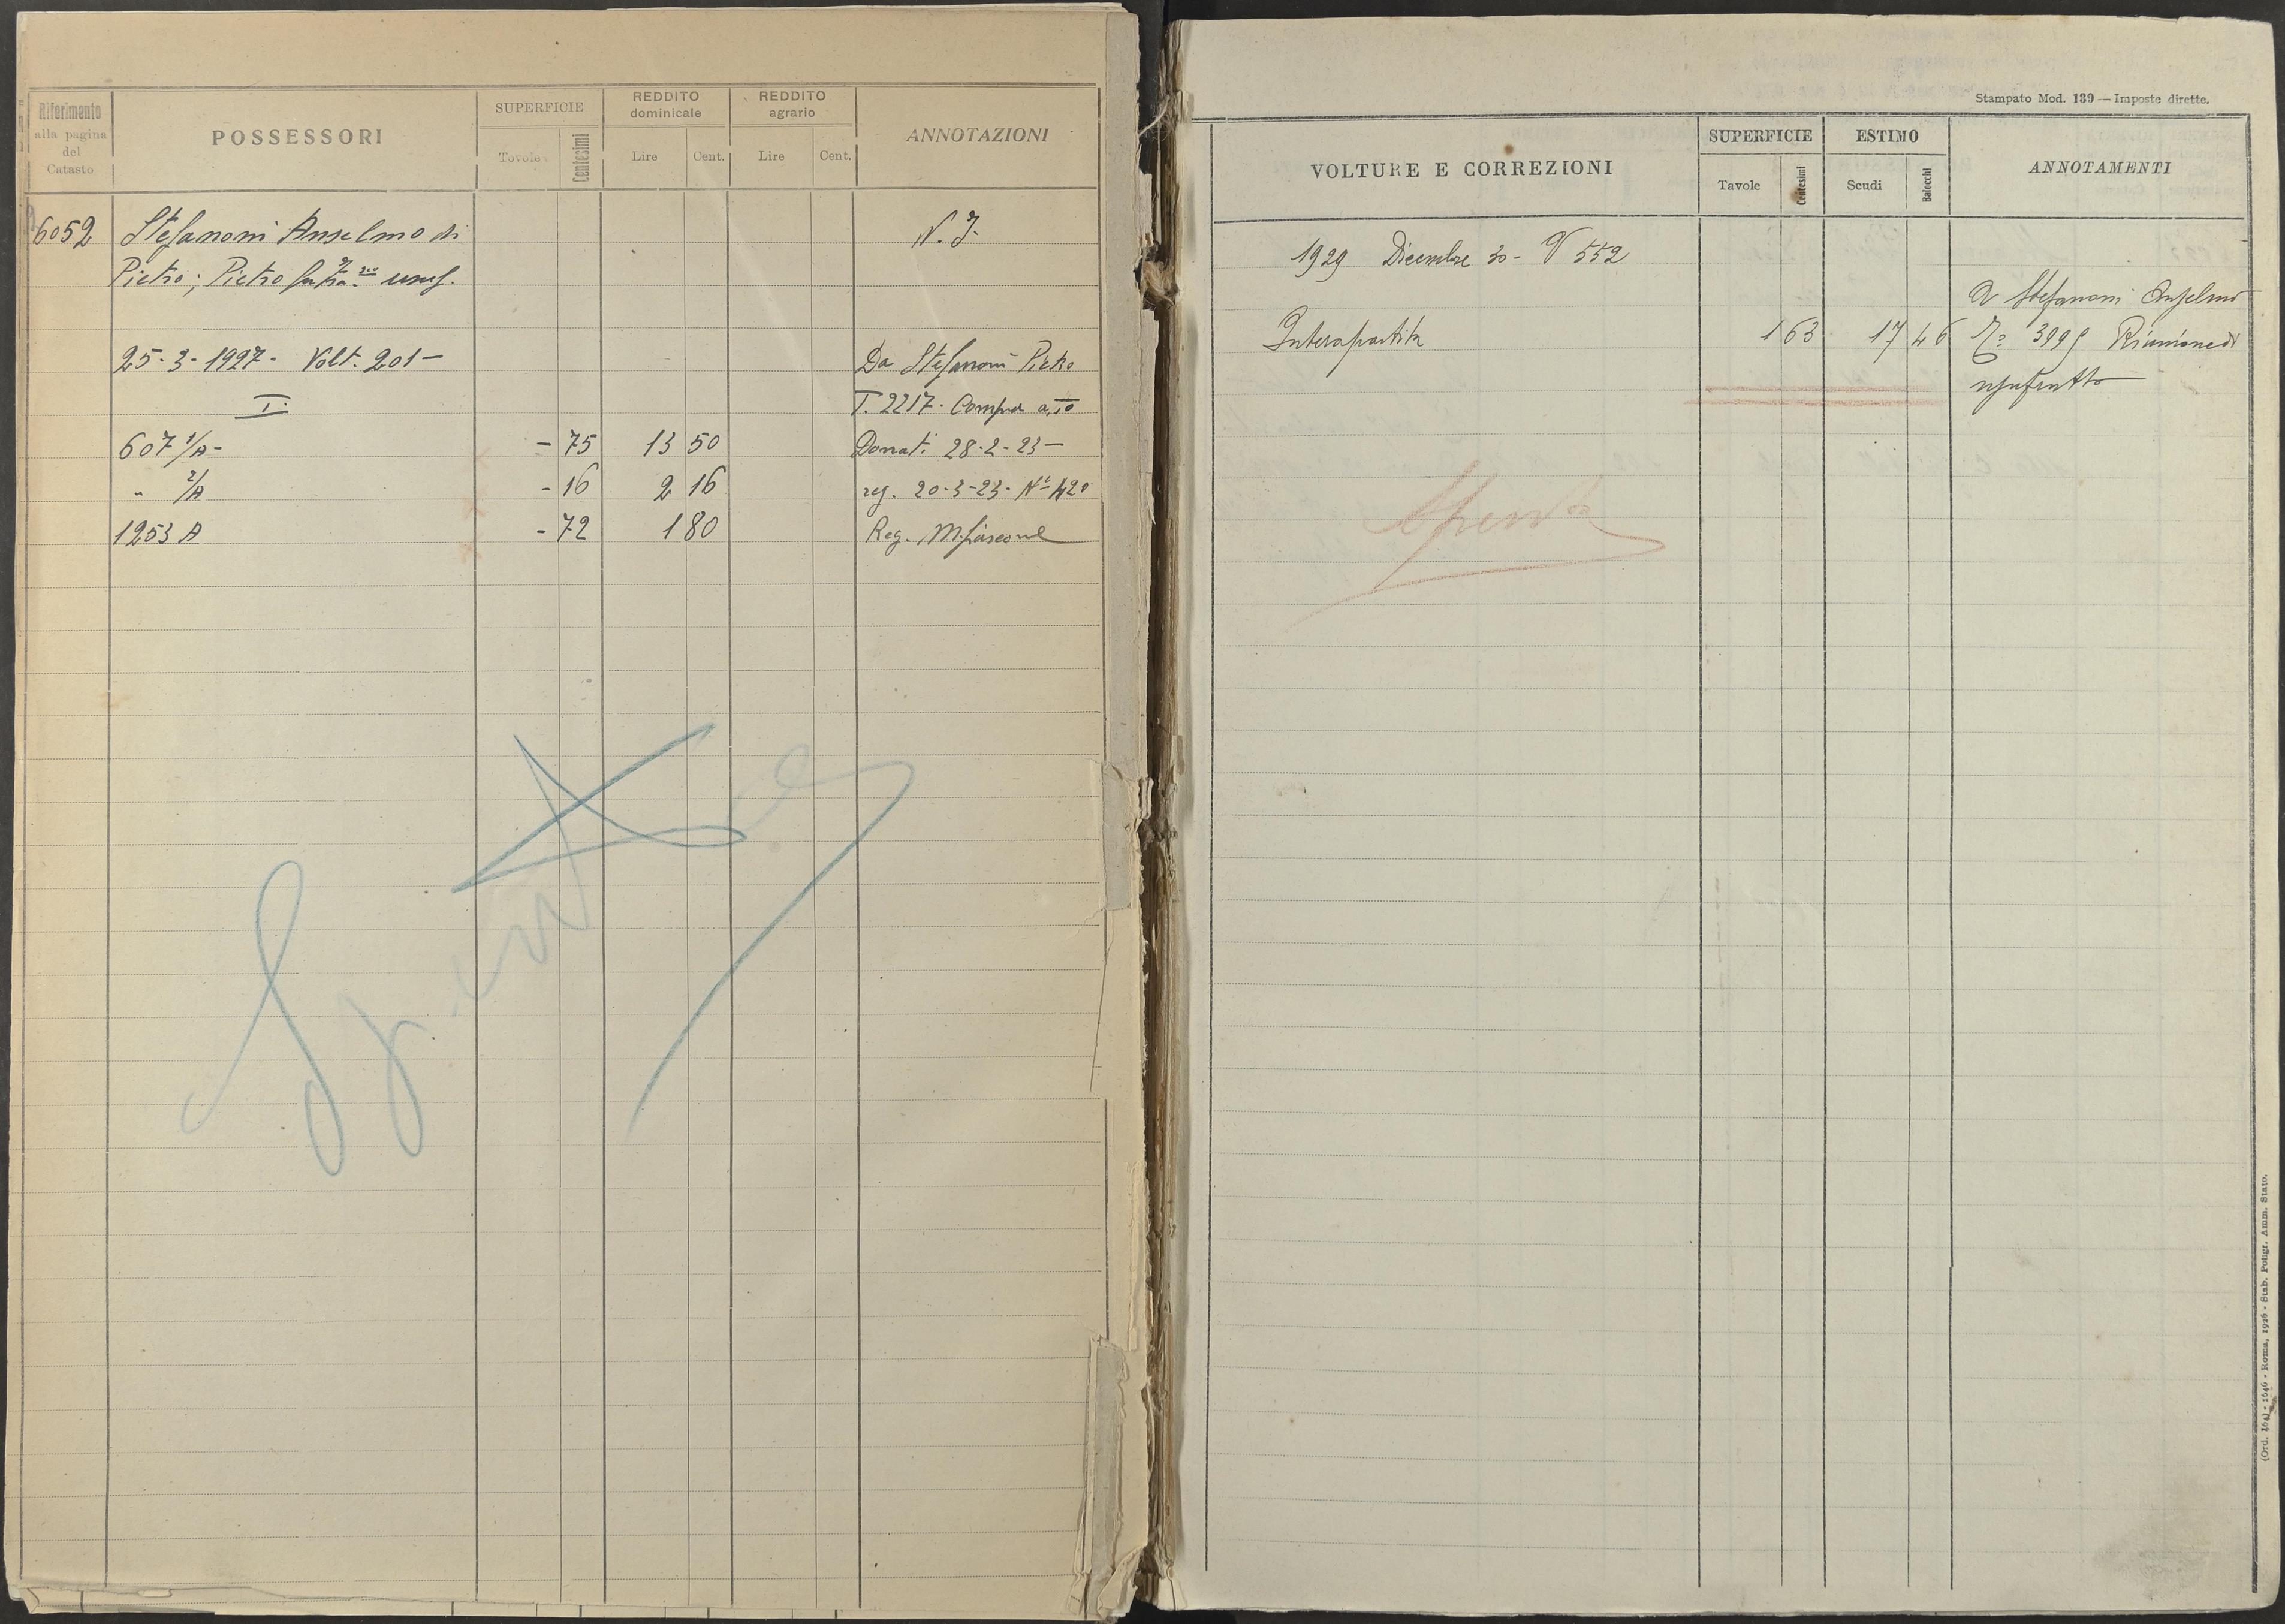 Riferimento
alla pagina
del
Catasto
POSSESSORI
SUPERFICIE
Tavole
Centesimi
REDDITO
dominicale
Lire
Cent.
REDDITO
agrario
Lire
Cent.
ANNOTAZIONI
6052
Stefanoni Anselmo di
N. I.
Pietro; Pietro usuf.
25-3-1927- Volt. 201-
Da Stefanoni Pietro
I.
T. 2217.
607 1/A - - 75 13 50
Donat. 28-2-23-
" 2/A - 16 2 16
reg. 20-3-23- N° 420
1253 A - 72 1 80
Reg.
Spenta
Stampato Mod. 139 — Imposte dirette.
VOLTURE E CORREZIONI
SUPERFICIE
Tavole
Centesimi
ESTIMO
Scudi
Baiocchi
ANNOTAMENTI
1929 Dicembre 30- V 552
A Stefanoni Anselmo
Intera partita 1 63 17 46
Riunione di
usufrutto
Spenta
(Ord. 164) - 1646 - Roma, 1926 - Stab. Poligr. Amm. Stato.